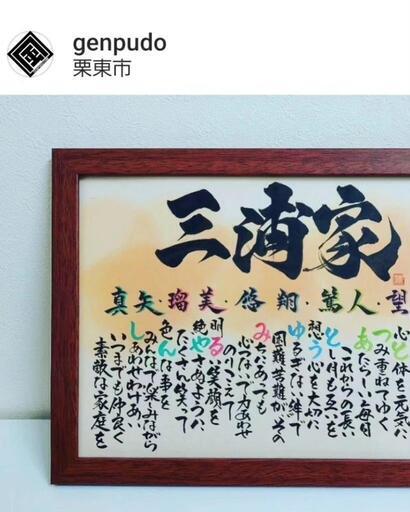 genpudo
栗東市
三浦家
真矢・瑠美・悠翔・篤人・望
心と体を元気に
つみ重ねてゆく
あたらしい毎日
これからの長い
とし月も互いを
想う心を大切に
ゆるぎない絆で
困難苦難が、その
みにあっても
心つないで力あわせ
のりこえて
明るい笑顔を
絶やさぬように
たくさん笑って
色んな事を
みんなで楽しみながら
しあわせわけあい
いつまでも仲良く
素敵な家庭を